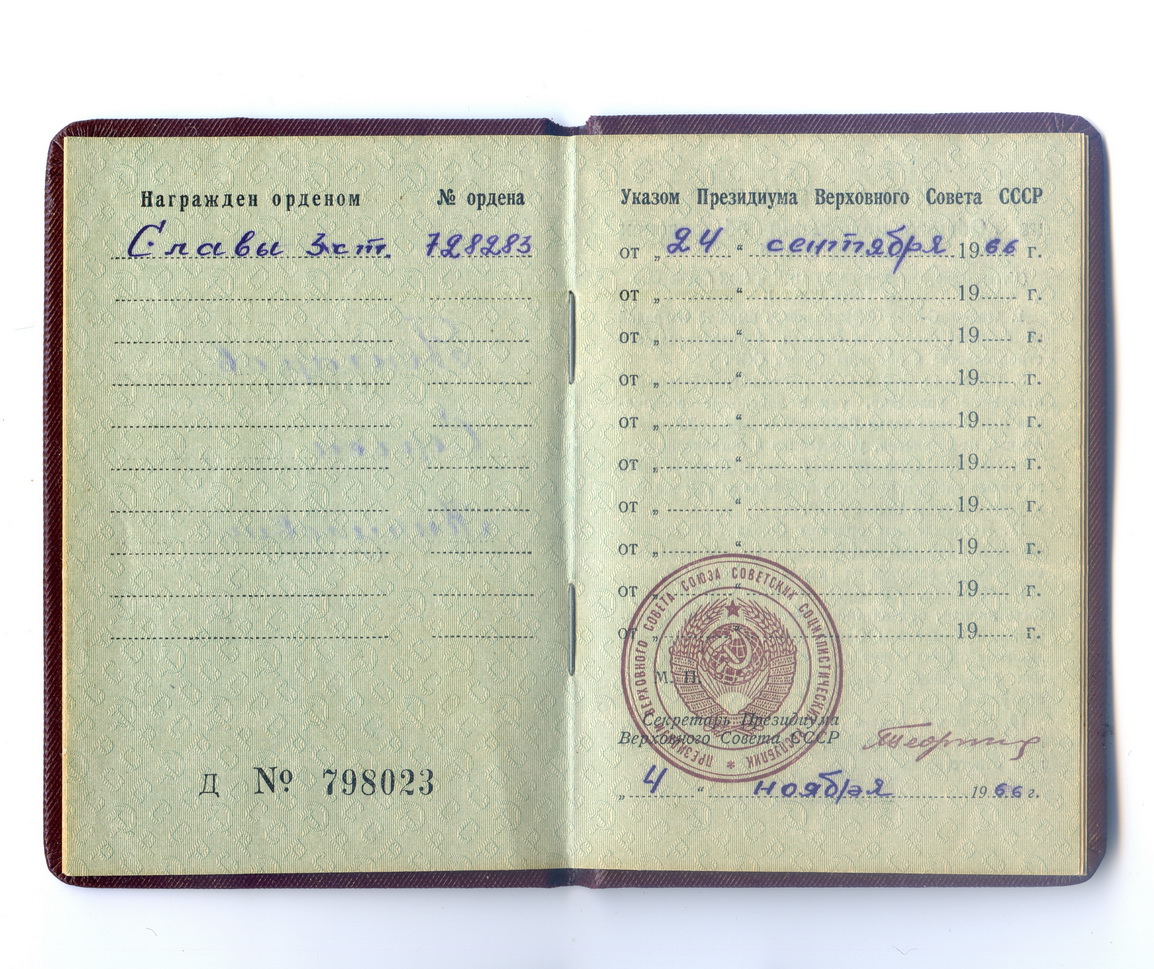 Награжден орденом № ордена
Славы 3 ст. 728283
Д № 798023
Указом Президиума Верховного Совета СССР
от „ 24 “ сентября 1966 г.
от „ “ 19 г.
от „ “ 19 г.
от „ “ 19 г.
от „ “ 19 г.
от „ “ 19 г.
от „ “ 19 г.
от „ “ 19 г.
от „ “ 19 г.
от „ “ 19 г.
ПРЕЗИДИУМ ВЕРХОВНОГО СОВЕТА СОЮЗА СОВЕТСКИХ СОЦИАЛИСТИЧЕСКИХ РЕСПУБЛИК
М. П.
Секретарь Президиума
Верховного Совета СССР
„ 4 “ ноября 1966 г.